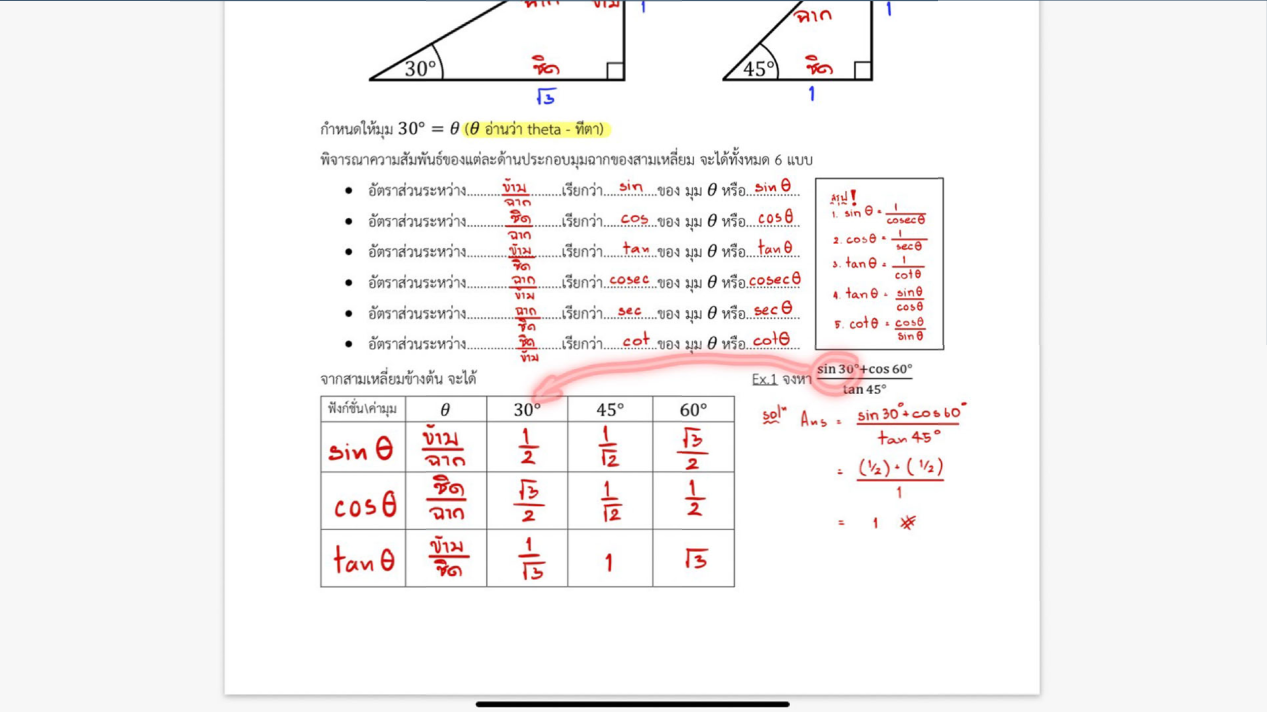 ฉาก ข้าม 1 ฉาก 1
30° ชิด 45° ชิด
√3 1
กำหนดให้มุม 30° = θ (θ อ่านว่า theta - ทีตา)
พิจารณาความสัมพันธ์ของแต่ละด้านประกอบมุมฉากของสามเหลี่ยม จะได้ทั้งหมด 6 แบบ
• อัตราส่วนระหว่าง ข้าม/ฉาก เรียกว่า sin ของ มุม θ หรือ sin θ
• อัตราส่วนระหว่าง ชิด/ฉาก เรียกว่า cos ของ มุม θ หรือ cos θ
• อัตราส่วนระหว่าง ข้าม/ชิด เรียกว่า tan ของ มุม θ หรือ tan θ
• อัตราส่วนระหว่าง ฉาก/ข้าม เรียกว่า cosec ของ มุม θ หรือ cosec θ
• อัตราส่วนระหว่าง ฉาก/ชิด เรียกว่า sec ของ มุม θ หรือ sec θ
• อัตราส่วนระหว่าง ชิด/ข้าม เรียกว่า cot ของ มุม θ หรือ cot θ
สรุป!
1. sin θ = 1/cosec θ
2. cos θ = 1/sec θ
3. tan θ = 1/cot θ
4. tan θ = sin θ/cos θ
5. cot θ = cos θ/sin θ
จากสามเหลี่ยมข้างต้น จะได้
ฟังก์ชั่น\ค่ามุม θ 30° 45° 60°
sin θ ข้าม/ฉาก 1/2 1/√2 √3/2
cos θ ชิด/ฉาก √3/2 1/√2 1/2
tan θ ข้าม/ชิด 1/√3 1 √3
Ex.1 จงหา (sin 30°+cos 60°)/tan 45°
solⁿ Ans = (sin 30° + cos 60°)/tan 45°
= ((1/2) + (1/2))/1
= 1 #